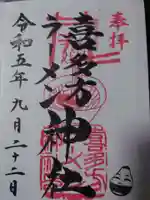 奉拝
喜多方
ラーメン神社
令和五年九月二十二日